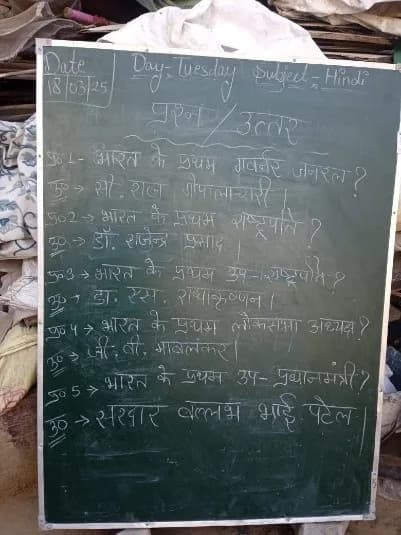 Date
18/03/25
Day-Tuesday Subject-Hindi
प्रश्न/उत्तर
प्र०1- भारत के प्रथम गवर्नर जनरल?
उ०→ सी. राज गोपालाचारी।
प्र०2→ भारत के प्रथम राष्ट्रपति?
उ०→ डॉ. राजेन्द्र प्रसाद।
प्र०3→ भारत के प्रथम उप-राष्ट्रपति?
उ०→ डा. एस. राधाकृष्णन।
प्र०4→ भारत के प्रथम लोकसभा अध्यक्ष?
उ०→ जी. वी. मावलंकर।
प्र०5→ भारत के प्रथम उप-प्रधानमंत्री?
उ०→ सरदार वल्लभ भाई पटेल।